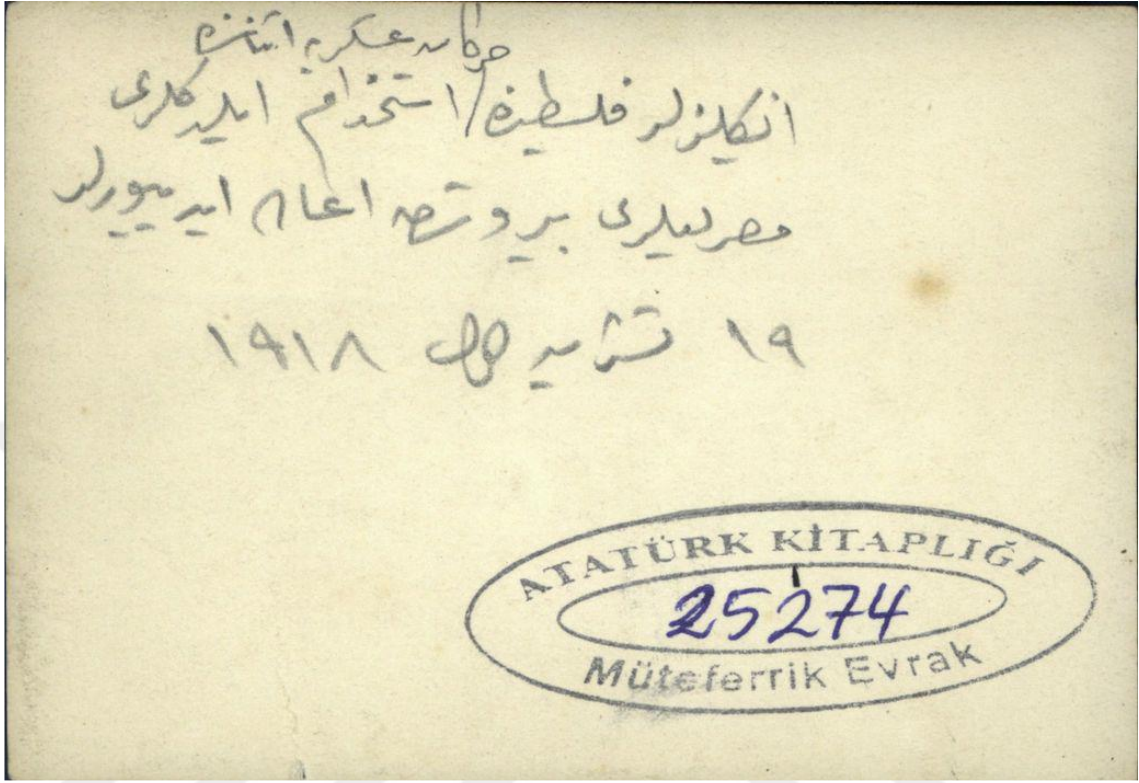 حركات عسكريه اثناسنده
انگليزلر فلسطينده استخدام ايلدكلرى
مصرليلرى بيروتده اعاشه ايدييورلر
١٩ تشرين اول ١٩١٨
ATATÜRK KİTAPLIĞI
25274
Müteferrik Evrak